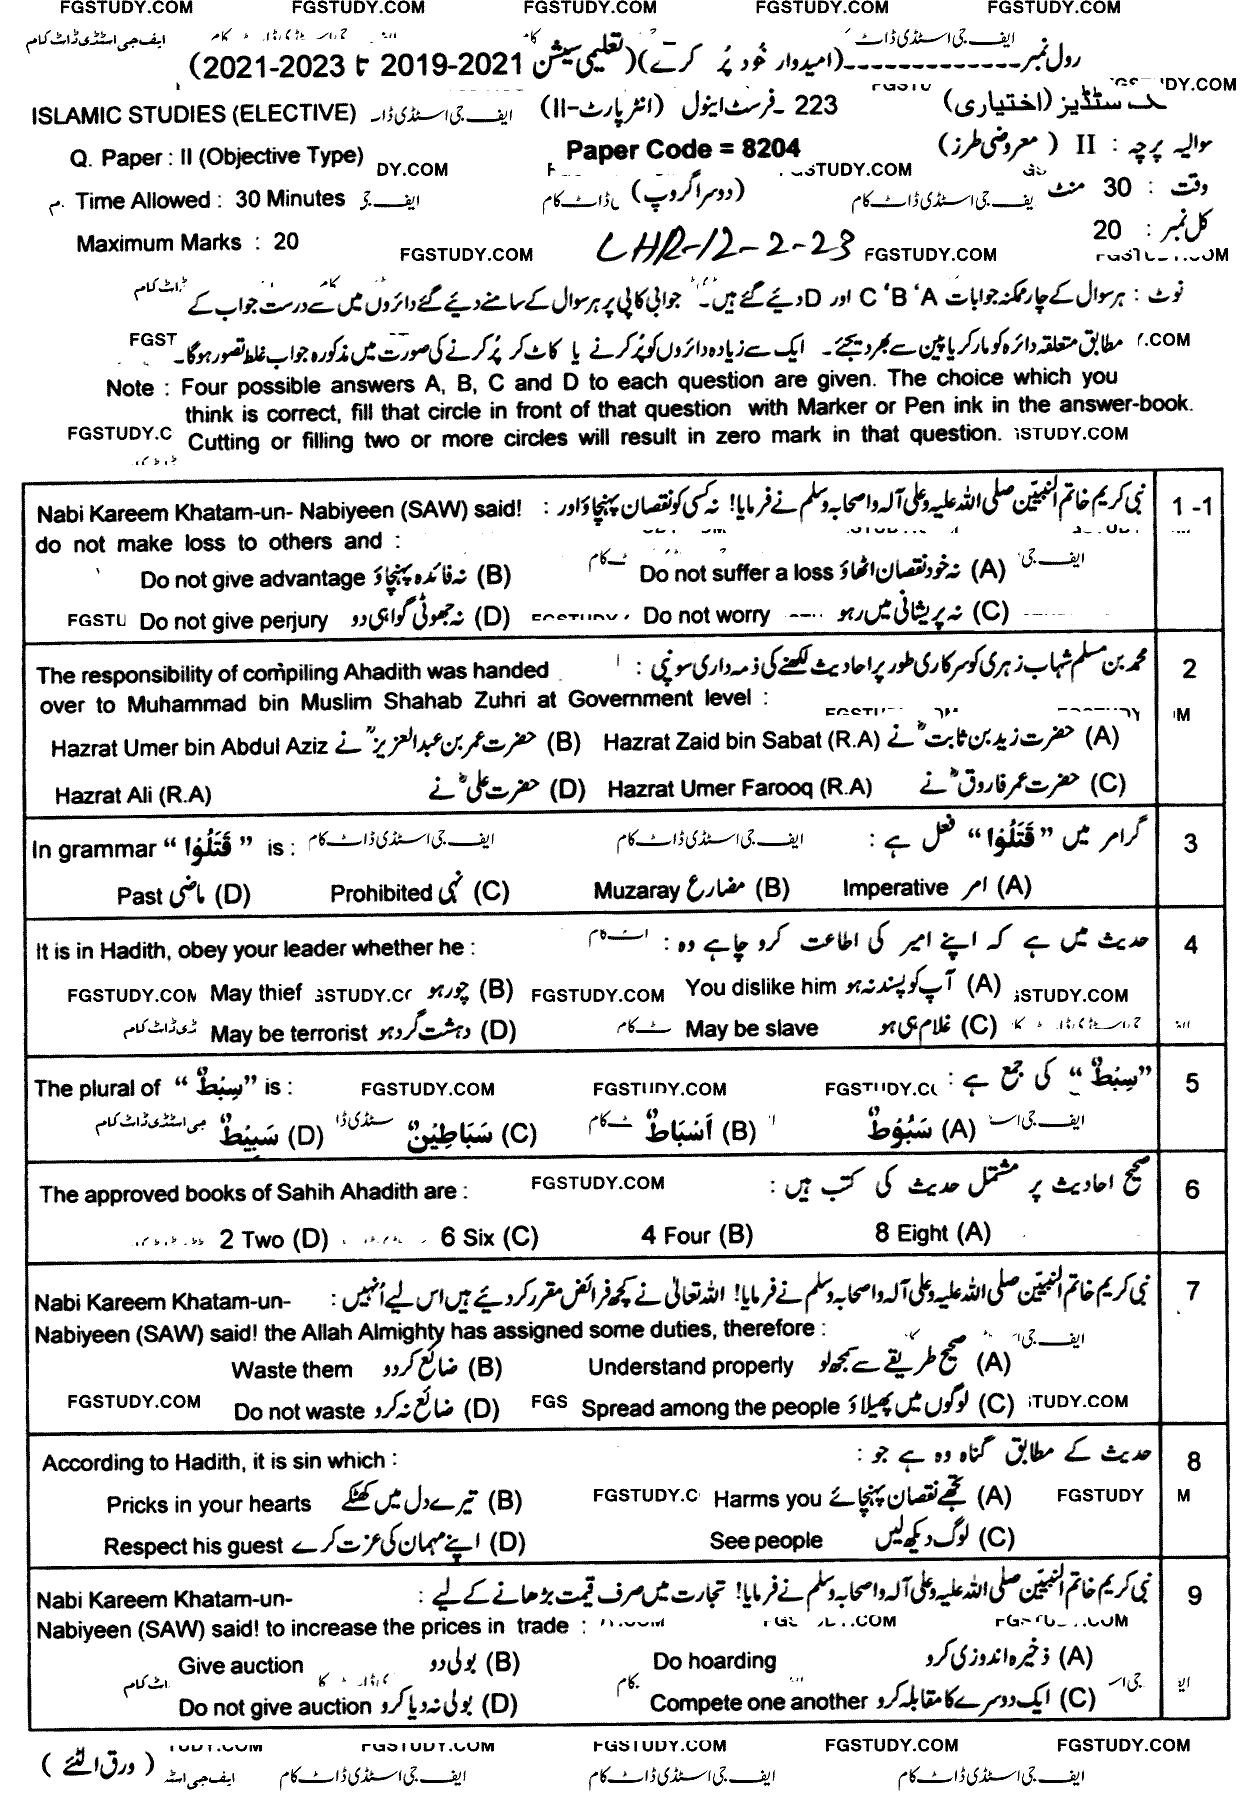 FGSTUDY.COM FGSTUDY.COM FGSTUDY.COM FGSTUDY.COM FGSTUDY.COM
رول نمبر --------------(امیدوار خود پُر کرے)(تعلیمی سیشن 2021-2019 تا 2023-2021)
ISLAMIC STUDIES (ELECTIVE) 223 ۔ فرسٹ اینول (انٹر پارٹ-II) (اختیاری)
Q. Paper : II (Objective Type) Paper Code = 8204 سوالیہ پرچہ : II (معروضی طرز)
Time Allowed : 30 Minutes (دوسرا گروپ) وقت : 30 منٹ
Maximum Marks : 20 LHR-12-2-23 کل نمبر : 20
FGSTUDY.COM FGSTUDY.COM
نوٹ : ہر سوال کے چار ممکنہ جوابات A ، B ، C اور D دیئے گئے ہیں۔ جوابی کاپی پر ہر سوال کے سامنے دیئے گئے دائروں میں سے درست جواب کے
مطابق متعلقہ دائرہ کو مارکر یا پین سے بھر دیجئے۔ ایک سے زیادہ دائروں کو پُر کرنے یا کاٹ کر پُر کرنے کی صورت میں مذکورہ جواب غلط تصور ہوگا۔
Note : Four possible answers A, B, C and D to each question are given. The choice which you
think is correct, fill that circle in front of that question with Marker or Pen ink in the answer-book.
Cutting or filling two or more circles will result in zero mark in that question.
1-1 نبی کریم خاتم النبیّین صلی اللہ علیہ وعلی آلہ واصحابہ وسلم نے فرمایا! نہ کسی کو نقصان پہنچاؤ اور : Nabi Kareem Khatam-un- Nabiyeen (SAW) said!
do not make loss to others and :
(A) نہ خود نقصان اٹھاؤ Do not suffer a loss (B) نہ فائدہ پہنچاؤ Do not give advantage
(C) نہ پریشانی میں رہو Do not worry (D) نہ جھوٹی گواہی دو Do not give perjury
2 محمد بن مسلم شہاب زہری کو سرکاری طور پر احادیث لکھنے کی ذمہ داری سونپی : The responsibility of compiling Ahadith was handed
over to Muhammad bin Muslim Shahab Zuhri at Government level :
(A) حضرت زید بن ثابتؓ نے Hazrat Zaid bin Sabat (R.A) (B) حضرت عمر بن عبدالعزیزؒ نے Hazrat Umer bin Abdul Aziz
(C) حضرت عمر فاروقؓ نے Hazrat Umer Farooq (R.A) (D) حضرت علیؓ نے Hazrat Ali (R.A)
3 گرامر میں “قَتَلُوْا” فعل ہے : In grammar “قَتَلُوْا” is :
(A) امر Imperative (B) مضارع Muzaray (C) نہی Prohibited (D) ماضی Past
4 حدیث میں ہے کہ اپنے امیر کی اطاعت کرو چاہے وہ : It is in Hadith, obey your leader whether he :
(A) آپ کو پسند نہ ہو You dislike him (B) چور ہو May thief
(C) غلام ہی ہو May be slave (D) دہشت گرد ہو May be terrorist
5 “سِبْطٌ” کی جمع ہے : The plural of “سِبْطٌ” is :
(A) سَبُوْطٌ (B) اَسْبَاطٌ (C) سَبَاطِیْنٌ (D) سَبِیْطٌ
6 صحیح احادیث پر مشتمل حدیث کی کتب ہیں : The approved books of Sahih Ahadith are :
(A) 8 Eight (B) 4 Four (C) 6 Six (D) 2 Two
7 نبی کریم خاتم النبیّین صلی اللہ علیہ وعلی آلہ واصحابہ وسلم نے فرمایا! اللہ تعالیٰ نے کچھ فرائض مقرر کر دیئے ہیں اس لیے اُنہیں : Nabi Kareem Khatam-un-
Nabiyeen (SAW) said! the Allah Almighty has assigned some duties, therefore :
(A) صحیح طریقے سے سمجھ لو Understand properly (B) ضائع کر دو Waste them
(C) لوگوں میں پھیلاؤ Spread among the people (D) ضائع نہ کرو Do not waste
8 حدیث کے مطابق گناہ وہ ہے جو : According to Hadith, it is sin which :
(A) تجھے نقصان پہنچائے Harms you (B) تیرے دل میں کھٹکے Pricks in your hearts
(C) لوگ دیکھ لیں See people (D) اپنے مہمان کی عزت کرے Respect his guest
9 نبی کریم خاتم النبیّین صلی اللہ علیہ وعلی آلہ واصحابہ وسلم نے فرمایا! تجارت میں صرف قیمت بڑھانے کے لیے : Nabi Kareem Khatam-un-
Nabiyeen (SAW) said! to increase the prices in trade :
(A) ذخیرہ اندوزی کرو Do hoarding (B) بولی دو Give auction
(C) ایک دوسرے کا مقابلہ کرو Compete one another (D) بولی نہ دیا کرو Do not give auction
(ورق الٹئے)
FGSTUDY.COM FGSTUDY.COM FGSTUDY.COM FGSTUDY.COM
ایف جی اسٹڈی ڈاٹ کام ایف جی اسٹڈی ڈاٹ کام ایف جی اسٹڈی ڈاٹ کام